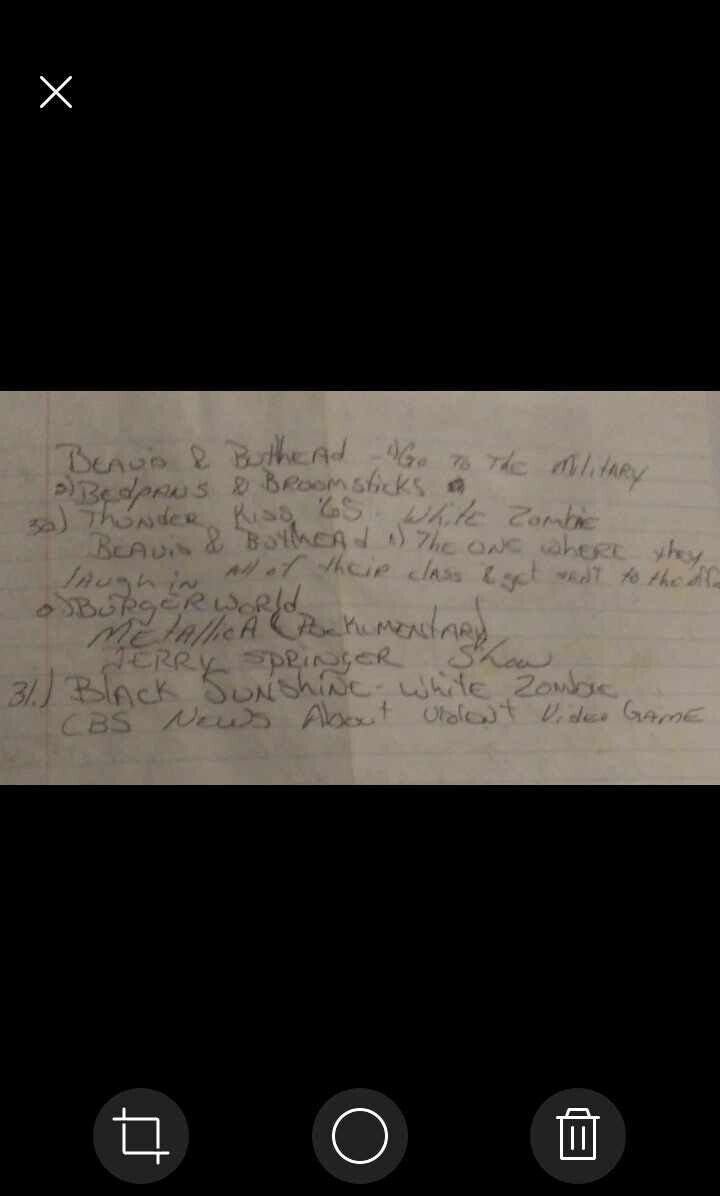 Beavis & Butthead - 1) Go To The Military
2) Bedpans & Broomsticks
30) Thunder Kiss '65 - White Zombie
Beavis & Butthead 1) The One where they
laugh in all of their class & get sent to the
2) Burger World
Metallica (Rockumentary)
Jerry Springer Show
31.) Black Sunshine - White Zombie
CBS News About Violent Video Game